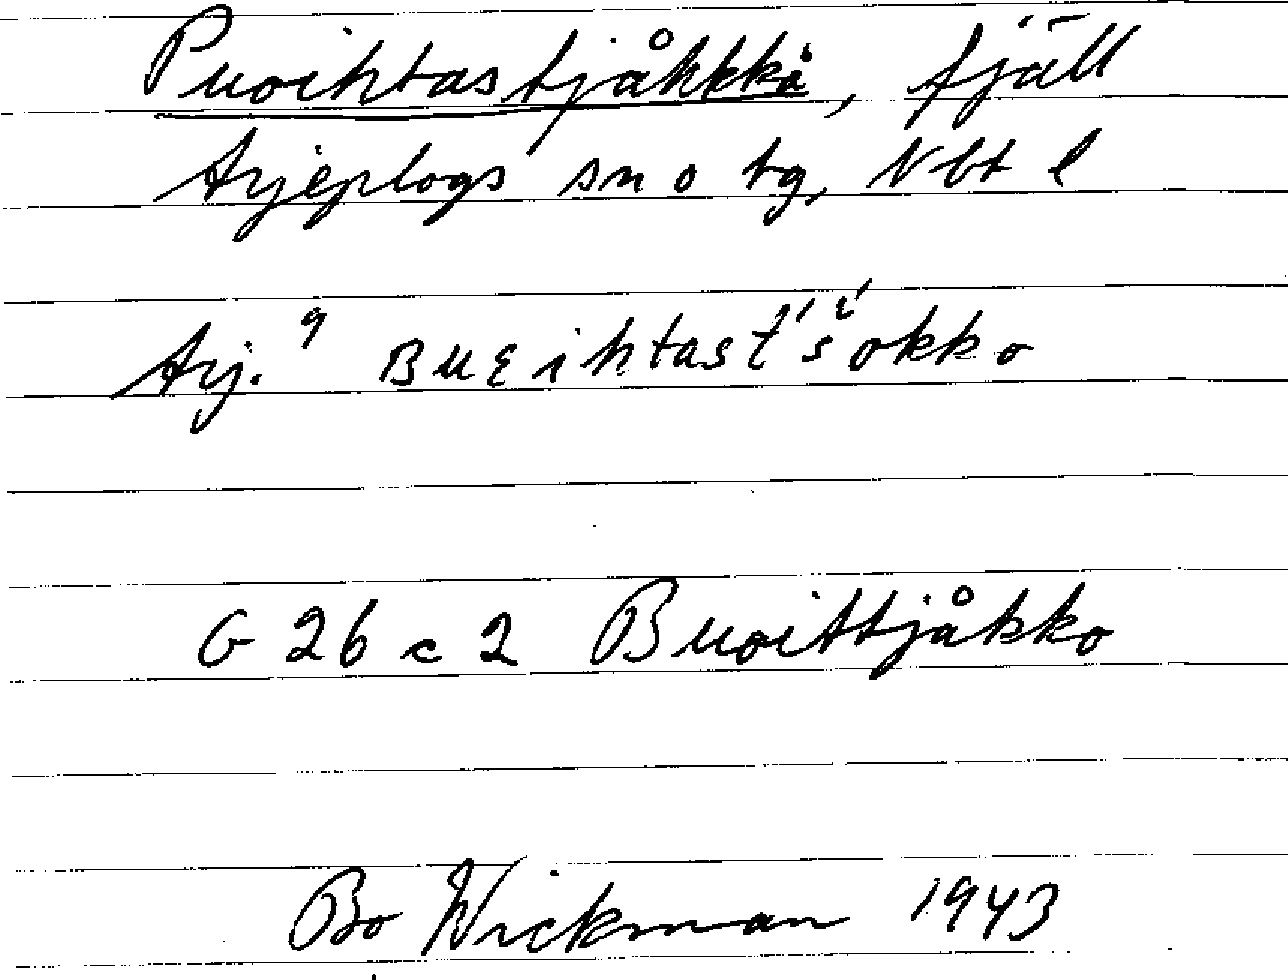 Puoihtastjåkkkå, fjäll
Arjeplogs sn o tg, Nbt l
Arj. 9 Buεihtast́'š́okko
G 26 c 2 Buoittjåkko
Bo Wickman 1943